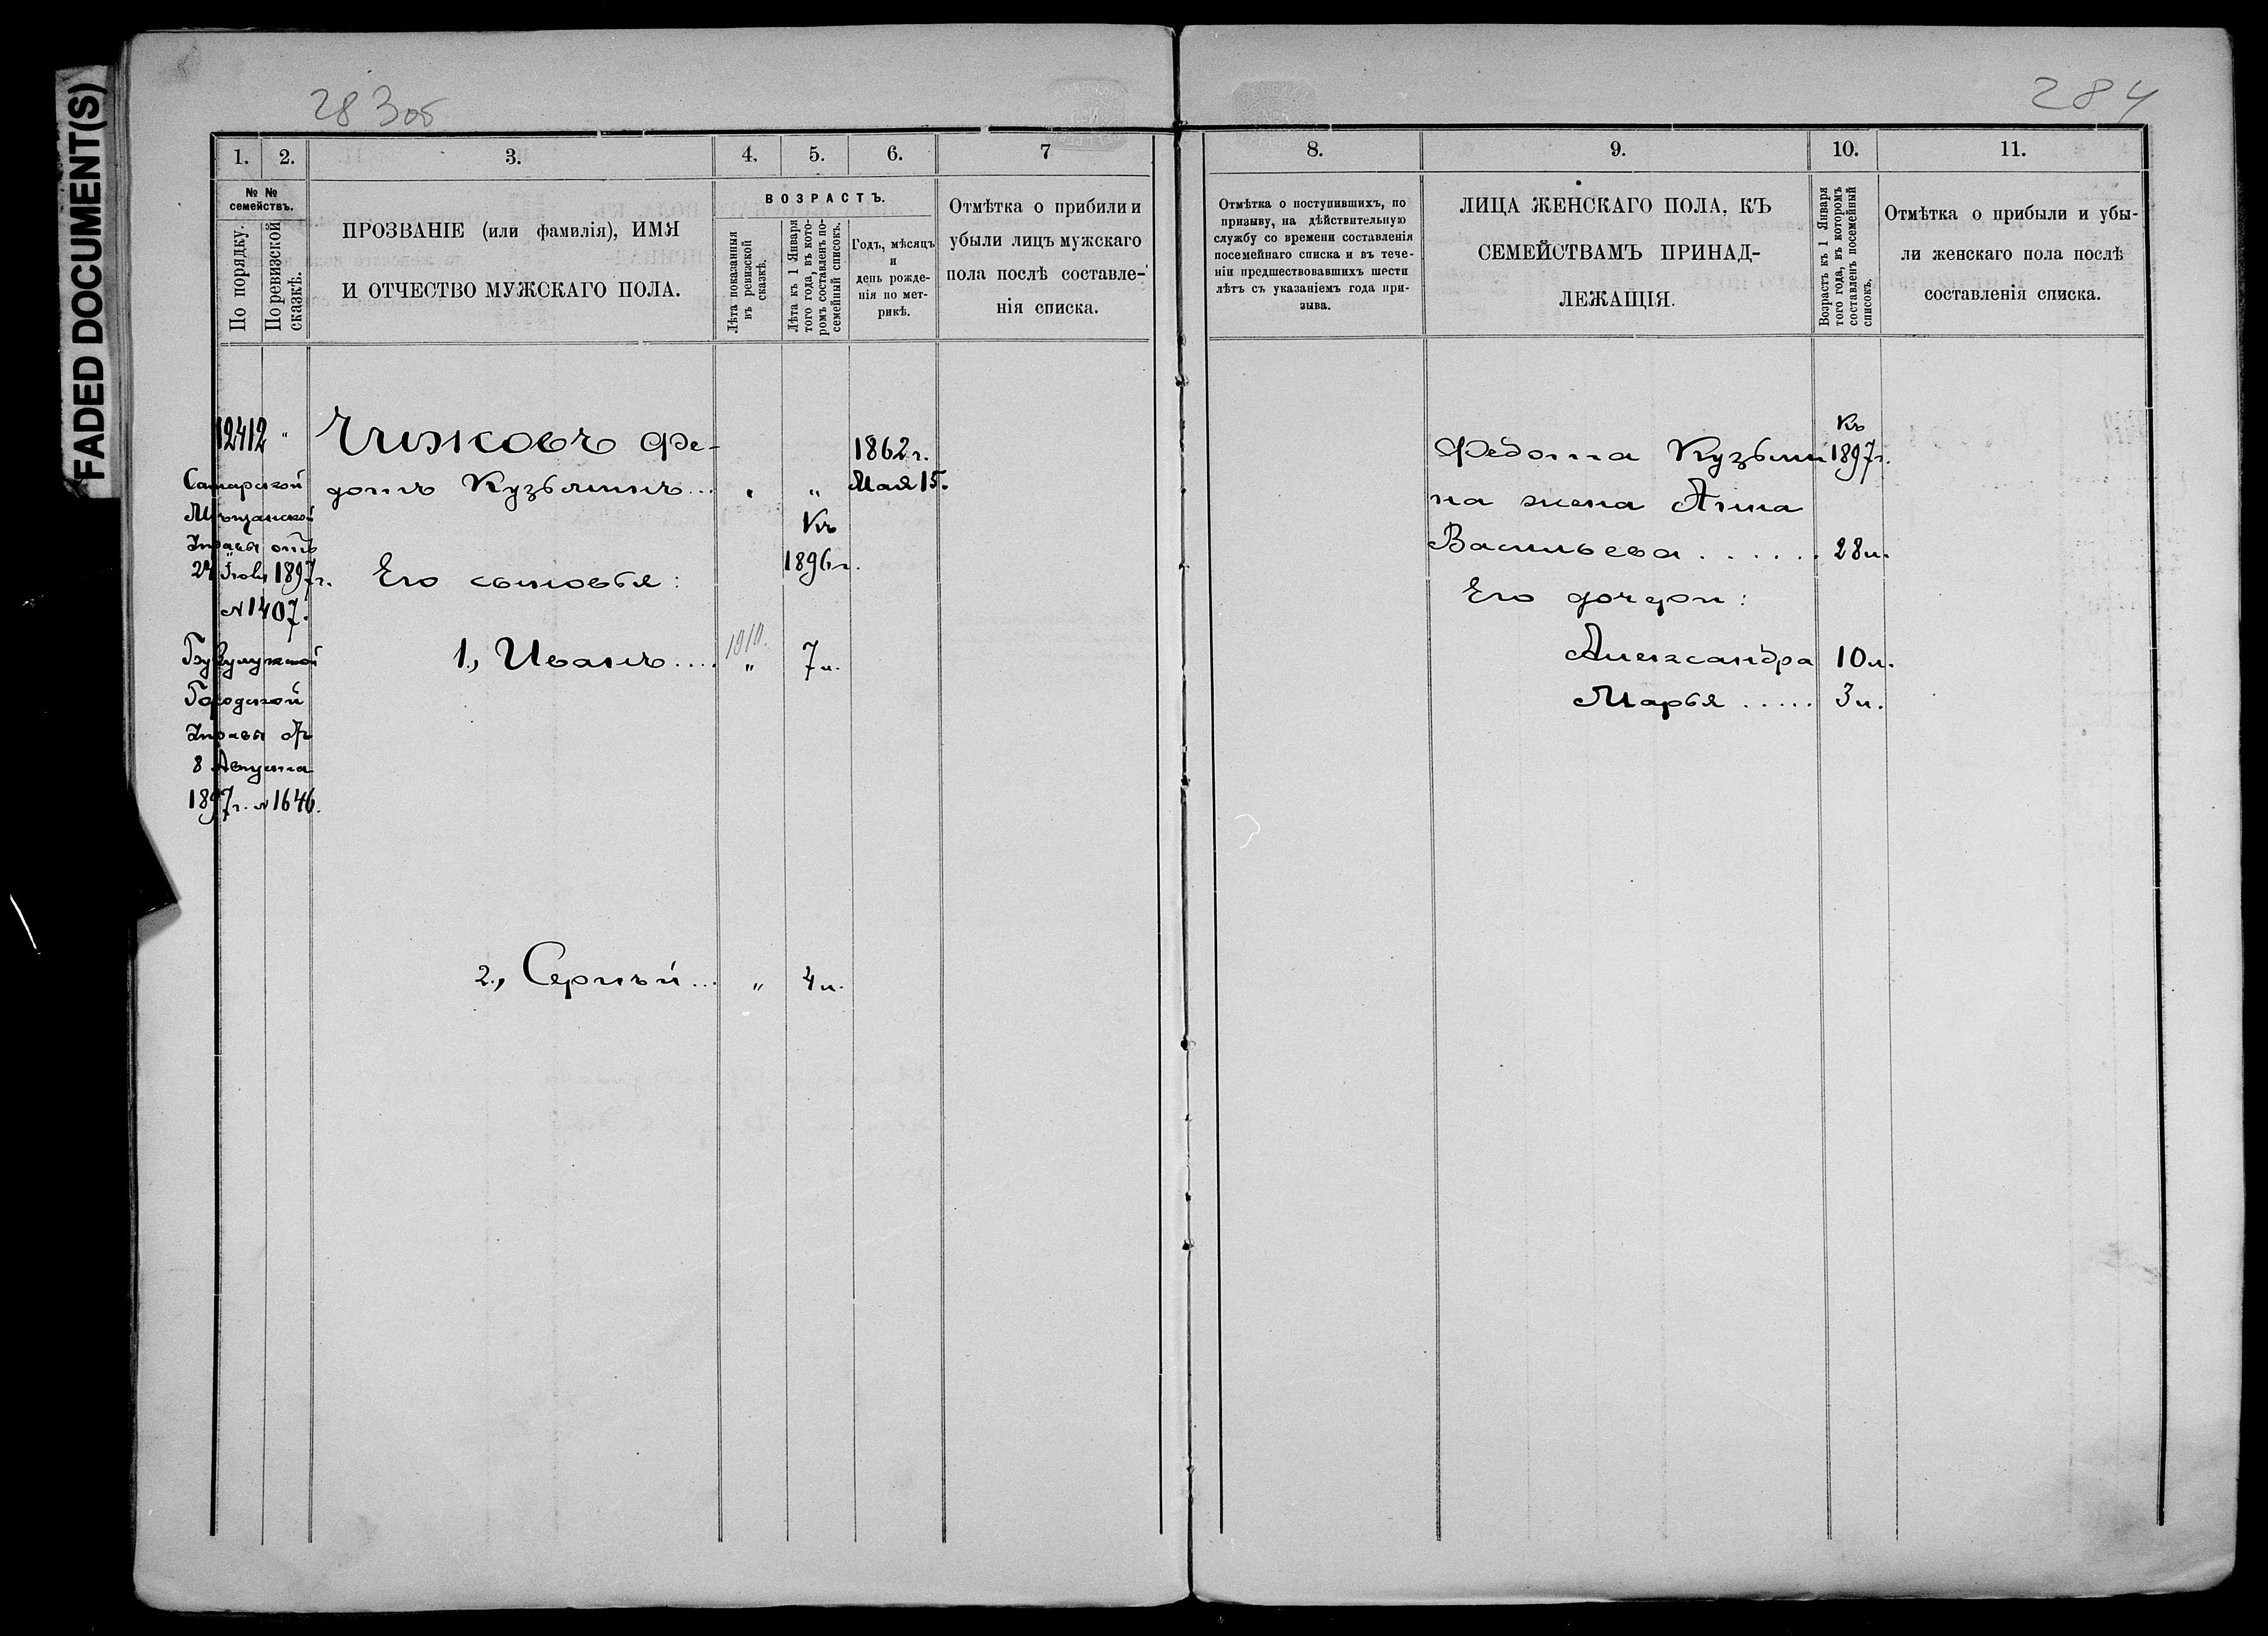 FADED DOCUMENT(S)
283об
284
1. 2. 3. 4. 5. 6. 7
№ № семействъ.
По порядку.
По ревизской сказкѣ.
ПРОЗВАНІЕ (или фамилія), ИМЯ
И ОТЧЕСТВО МУЖСКАГО ПОЛА.
ВОЗРАСТЪ.
Лѣта показанныя
въ ревизской
сказкѣ.
Лѣта къ 1 Января
того года, въ кото-
ромъ составленъ по-
семейный списокъ.
Годъ, мѣсяцъ
и
день рожде-
нія по мет-
рикѣ.
Отмѣтка о прибыли и
убыли лицъ мужскаго
пола послѣ составле-
нія списка.
12412 "
Самарской
Мѣщанской
Управы отъ
24 Іюля 1897 г.
№ 1407.
Бузулукской
Городской
Управы отъ
8 Августа
1897 г. № 1646.
Чижовъ Фе-
дотъ Кузьминъ... " " 1862 г. Мая 15.
Къ
1896 г.
Его сыновья:
1., Иванъ.... 1910. " 7 л.
2., Сергѣй... " 4 л.
8. 9. 10. 11.
Отмѣтка о поступившихъ, по
призыву, на дѣйствительную
службу со времени составленія
посемейнаго списка и въ тече-
ніи предшествовавшихъ шести
лѣтъ съ указаніемъ года при-
зыва.
ЛИЦА ЖЕНСКАГО ПОЛА, КЪ
СЕМЕЙСТВАМЪ ПРИНАД-
ЛЕЖАЩІЯ.
Возрастъ къ 1 Января
того года, въ которомъ
составленъ посемейный
списокъ.
Отмѣтка о прибыли и убы-
ли женскаго пола послѣ
составленія списка.
Къ
Федота Кузьми 1897 г.
на жена Анна
Васильева . . . . . . 28 л.
Его дочери:
Александра 10 л.
Марья ..... 3 л.